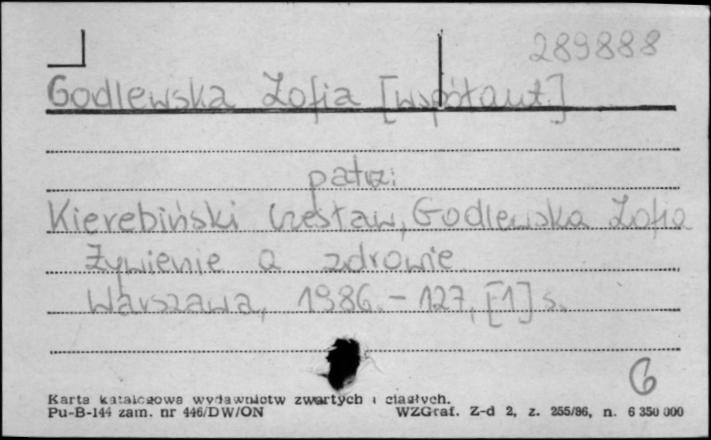 289888
Godlewska Zofia [współaut.]
patrz:
Kierebiński Czesław, Godlewska Zofia
Żywienie a zdrowie.
Warszawa, 1986. - 127, [1] s.
6
Karta katalogowa wydawnictw zwartych i ciągłych.
Pu-B-144 zam. nr 446/DW/ON WZGraf. Z-d 2, z. 255/86, n. 6 350 000